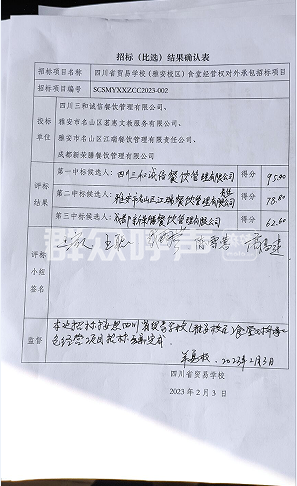 招标（比选）结果确认表
招标项目名称 四川省贸易学校（雅安校区）食堂经营权对外承包招标项目
招标项目编号 SCSMYXXZCC2023-002
投标单位
四川三和诚信餐饮管理有限公司、
雅安市名山区茗惠文教服务有限公司、
雅安市名山区江瑞餐饮管理有限责任公司、
成都新荣膳餐饮管理有限公司
评标结果
第一中标候选人：四川三和诚信餐饮管理有限公司 得分 95.00
第二中标候选人：雅安市名山区江瑞餐饮管理有限责任公司 得分 78.80
第三中标候选人：成都新荣膳餐饮管理有限公司 得分 62.60
评标小组签名
群众呼声
监督
本次招标按照四川省贸易学校（雅安校区）食堂对外承
包经营项目招标方案完成。
2023.2月3日
四川省贸易学校
2023 年 2 月 3 日